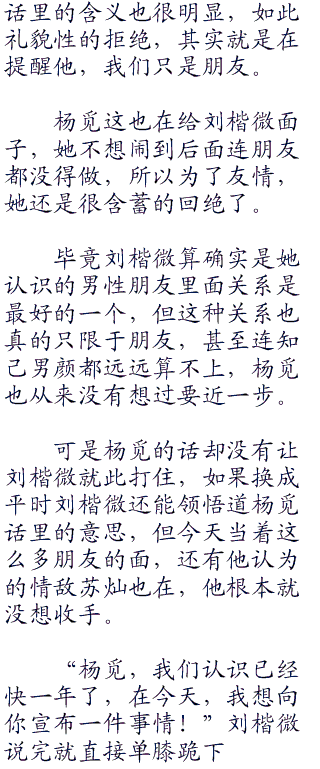 话里的含义也很明显，如此
礼貌性的拒绝，其实就是在
提醒他，我们只是朋友。
杨觅这也在给刘楷微面
子，她不想闹到后面连朋友
都没得做，所以为了友情，
她还是很含蓄的回绝了。
毕竟刘楷微算确实是她
认识的男性朋友里面关系是
最好的一个，但这种关系也
真的只限于朋友，甚至连知
己男颜都远远算不上，杨觅
也从来没有想过要近一步。
可是杨觅的话却没有让
刘楷微就此打住，如果换成
平时刘楷微还能领悟道杨觅
话里的意思，但今天当着这
么多朋友的面，还有他认为
的情敌苏灿也在，他根本就
没想收手。
“杨觅，我们认识已经
快一年了，在今天，我想向
你宣布一件事情！”刘楷微
说完就直接单膝跪下